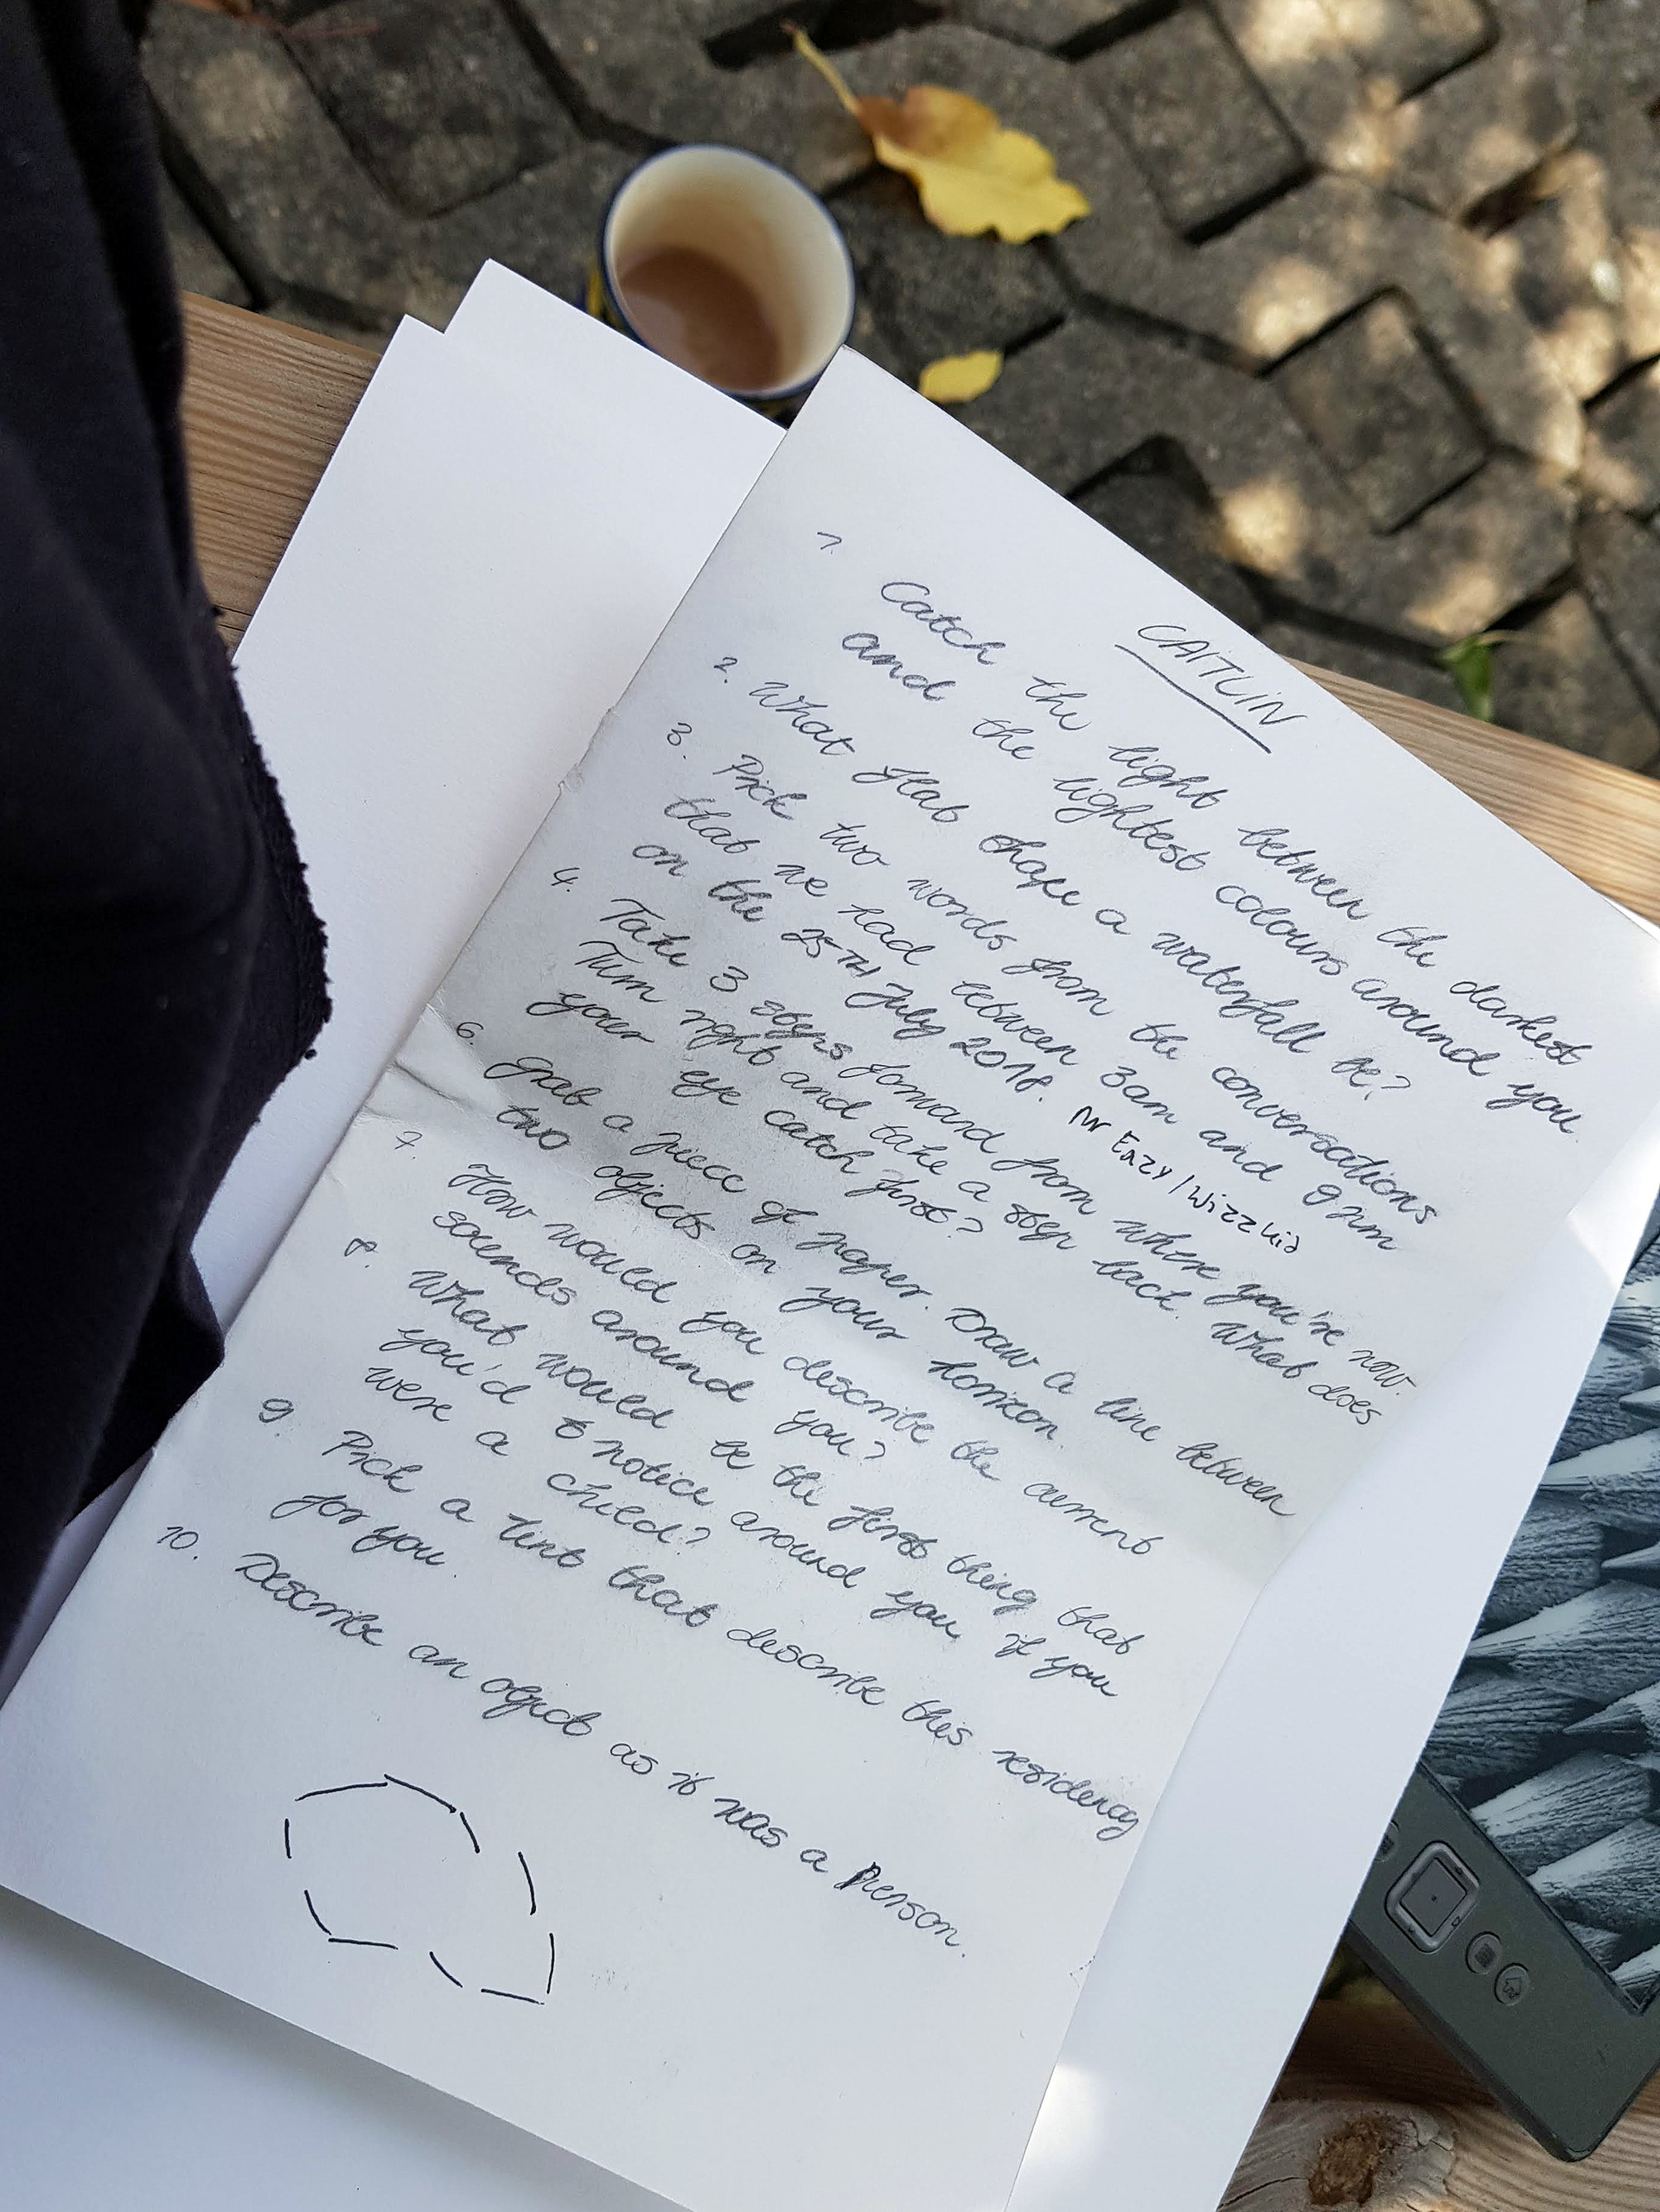 CAITLIN
1. Catch the light between the darkest
and the lightest colours around you.
2. What flat shape a waterfall be?
3. Pick two words from the conversations
that we had between 3am and 9pm
on the 25TH July 2018. Mr Eazy / Wizzkid
4. Take 3 steps forward from where you're now.
Turn right and take a step back. What does
your eye catch first?
6. Grab a piece of paper. Draw a line between
two objects on your horizon.
7. How would you describe the current
sounds around you?
8. What would be the first thing that
you'd notice around you, if you
were a child?
9. Pick a tint that describe this residency
for you.
10. Describe an object as it was a person.